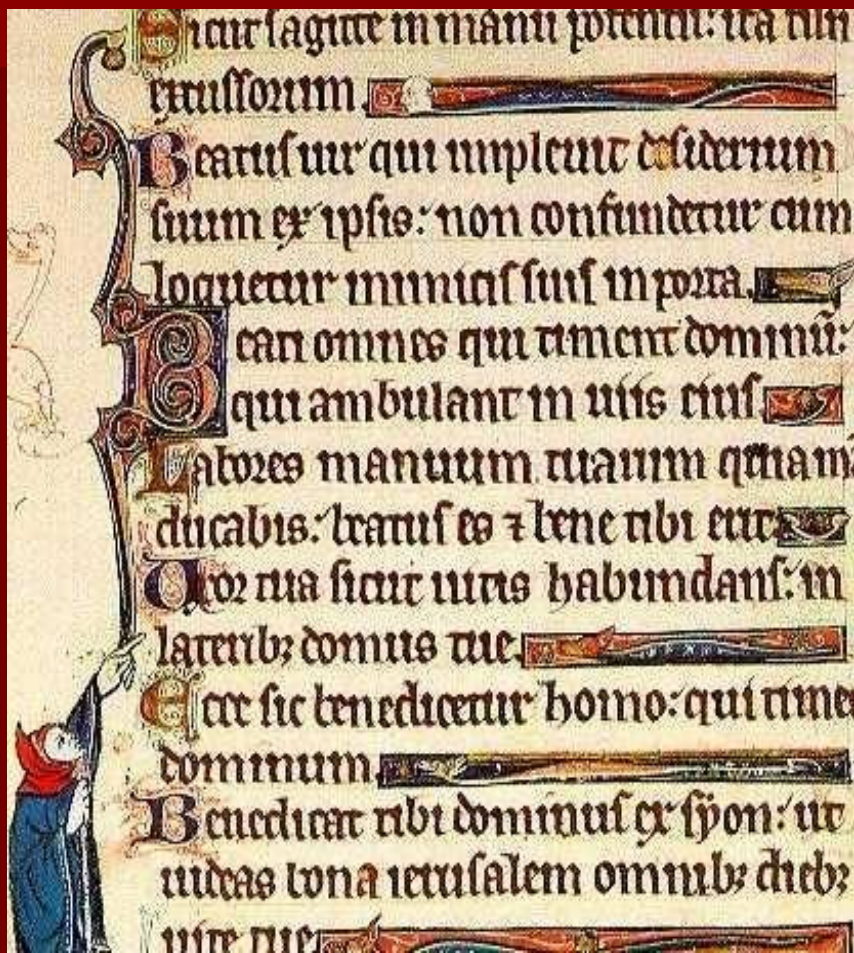 Sicut sagitte in manu potentis: ita filii
excussorum.
Beatus uir qui impleuit desiderium
suum ex ipsis: non confundetur cum
loquetur inimicis suis in porta.
Beati omnes qui timent dominũ:
qui ambulant in uiis eius.
Labores manuum tuarum quia mã
ducabis: beatus es ⁊ bene tibi erit.
Uxor tua sicut uitis habundans: in
laterib; domus tue.
Ecce sic benedicetur homo: qui time
dominum.
Benedicat tibi dominus ex syon: ut
uideas bona ierusalem omnib; dieb;
uite tue.